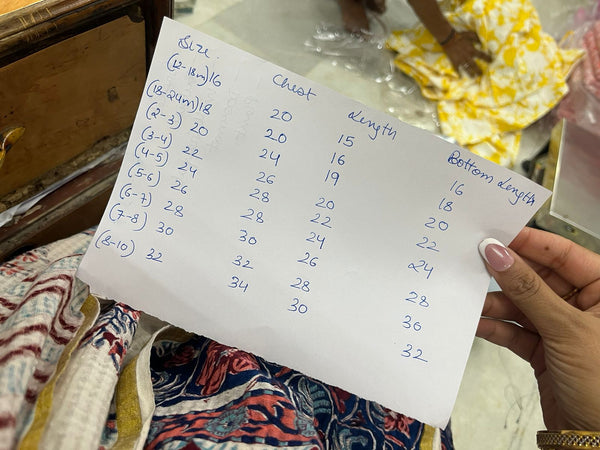 Size. Chest Length Bottom Length
(12-18m) 16 20 15 16
(18-24m) 18 20 16 18
(2-3) 20 24 19 20
(3-4) 22 26 20 22
(4-5) 24 28 22 24
(5-6) 26 28 24
(6-7) 28 30 26 28
(7-8) 30 32 28 30
(8-10) 32 34 30 32